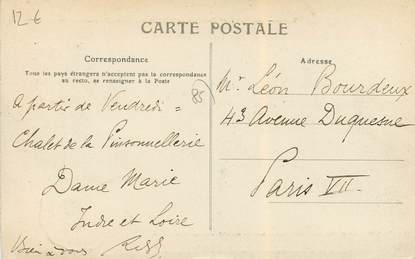 12 €
CARTE POSTALE
Correspondance
Tous les pays étrangers n'acceptent pas la correspondance
au recto, se renseigner à la Poste
85
a partir de Vendredi =
Chalet de la Pinsonnellerie
Dame Marie
Indre et Loire
Bien à vous
Adresse
Mr Léon Bourdeux
43 Avenue Duquesne
Paris VII.